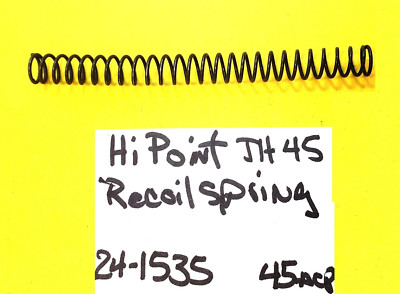 Hi Point JH 45
Recoil Spring
24-1535 45 ACP